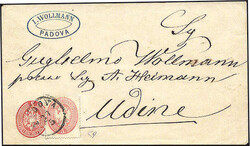 J. WOLLMANN
PADOVA
Sg
Guglielmo Wollmann
presso Sg A. Heimann
Udine